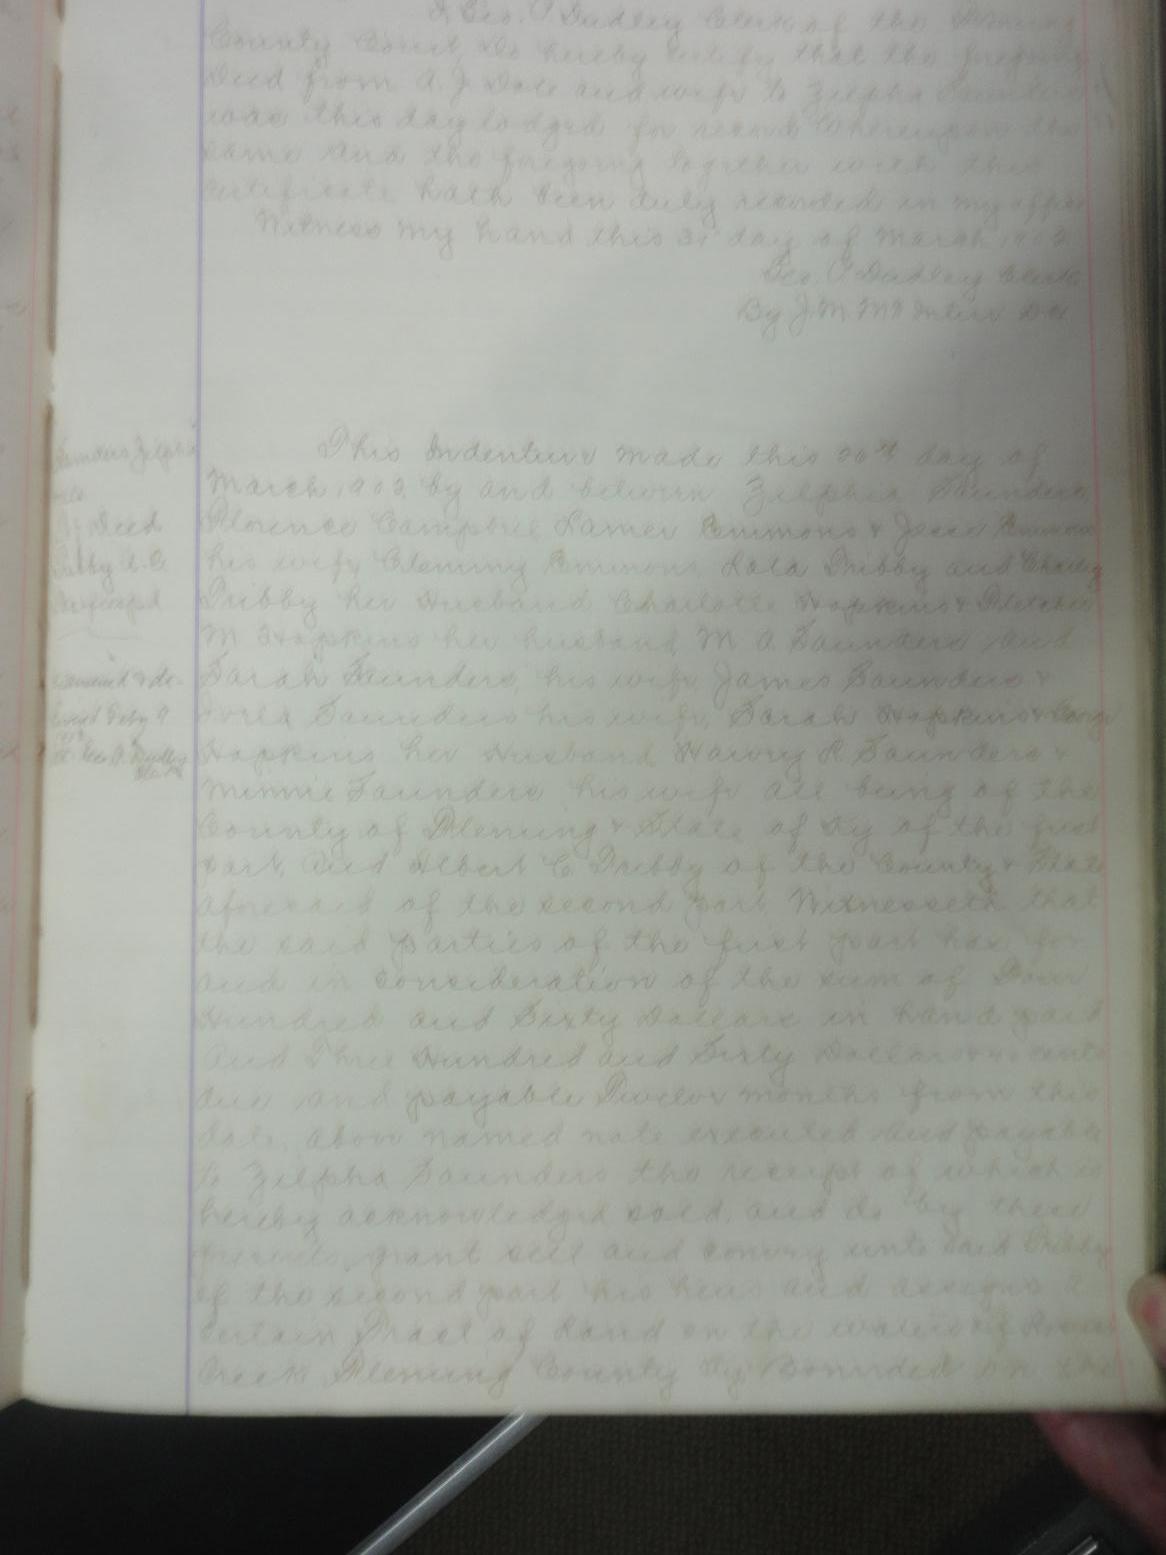 I Geo. P Dudley Clerk of the Fleming
County Court, Do hereby certify that the foregoing
Deed from A. J. Dale and wife to Zilpha Saunders
was this day lodged for record Whereupon the
same and the foregoing together with this
certificate hath been duly recorded in my office
Witness my hand this 21 day of March 1902
Geo. P Dudley Clerk
By J. M. DC
Saunders Zilpha
Deed
Pribby A. C.
This Indenture made this 20th day of
March, 1902 by and between Zilpha Saunders
Florence Campbell Lamer Emmons & Emmons
his wife, Fleming Emmons, Lola Pribby and Charley
Pribby her Husband Charlotte Hopkins & Fletcher
M Hopkins her husband M A Saunders and
Sarah Saunders, his wife, James Saunders &
Saunders his wife, Sarah Hopkins &
Hopkins her Husband R Saunders &
Minnie Saunders his wife all being of the
County of Fleming & State of Ky of the first
part, and Albert C. Pribby of the County & State
aforesaid of the second part Witnesseth that
the said parties of the first part has for
and in consideration of the sum of Four
Hundred and Sixty Dollars in hand paid
and Three Hundred and Sixty Dollars cents
due and payable Twelve months from this
date, above named note executed and payable
to Zilpha Saunders the receipt of which is
hereby acknowledged sold, and do by these
presents, grant sell and convey unto said Pribby
of the second part his heirs and assigns a
certain Tract of Land on the waters of
Creek Fleming County Ky Bounded on the